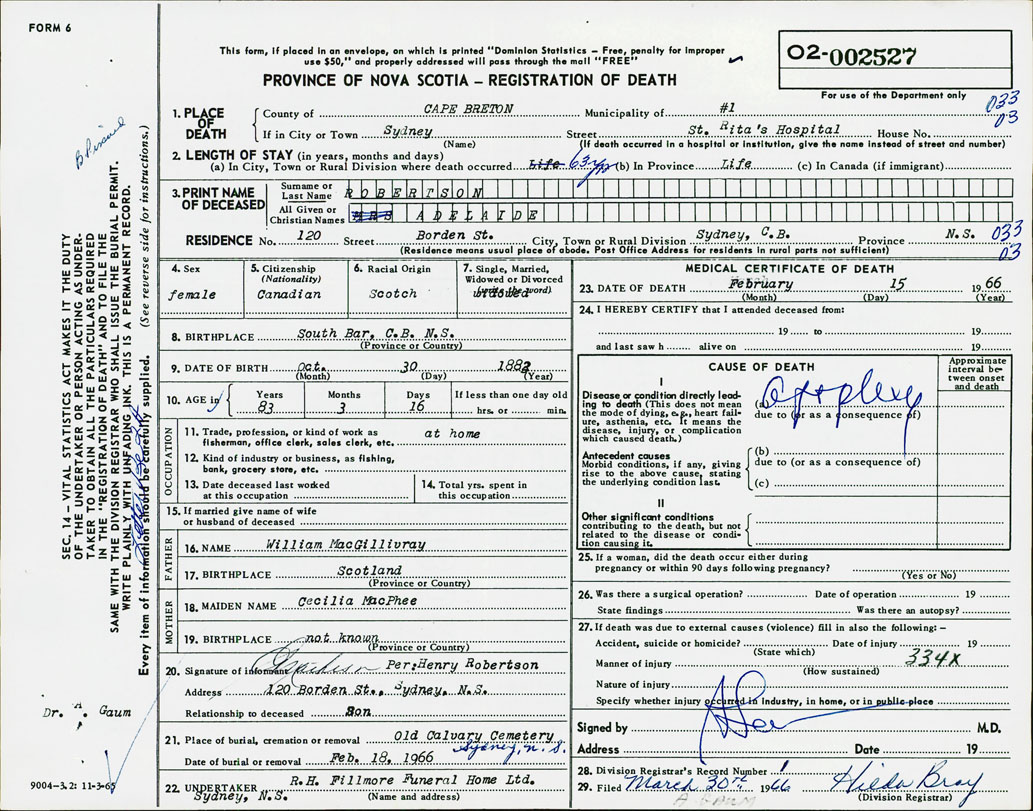 FORM 6
This form, if placed in an envelope, on which is printed "Dominion Statistics – Free, penalty for improper
use $50," and properly addressed will pass through the mail "FREE"
O2-002527
PROVINCE OF NOVA SCOTIA – REGISTRATION OF DEATH
For use of the Department only
033
03
1. PLACE OF DEATH
County of CAPE BRETON Municipality of #1
If in City or Town Sydney Street St. Rita's Hospital House No.
(Name) (If death occurred in a hospital or institution, give the name instead of street and number)
2. LENGTH OF STAY (in years, months and days)
(a) In City, Town or Rural Division where death occurred Life 63 yr (b) In Province Life (c) In Canada (if immigrant)
3. PRINT NAME OF DECEASED
Surname or Last Name ROBERTSON
All Given or Christian Names MRS ADELAIDE
RESIDENCE No. 120 Street Borden St. City, Town or Rural Division Sydney, C.B. Province N.S. 033
(Residence means usual place of abode. Post Office Address for residents in rural parts not sufficient) 03
4. Sex
female
5. Citizenship
(Nationality)
Canadian
6. Racial Origin
Scotch
7. Single, Married,
Widowed or Divorced
(write the word)
widowed
8. BIRTHPLACE South Bar, C.B. N.S.
(Province or Country)
9. DATE OF BIRTH Oct. 30 1882
(Month) (Day) (Year)
10. AGE in
Years 83
Months 3
Days 16
If less than one day old
hrs. or min.
OCCUPATION
11. Trade, profession, or kind of work as at home
fisherman, office clerk, sales clerk, etc.
12. Kind of industry or business, as fishing,
bank, grocery store, etc.
13. Date deceased last worked
at this occupation
14. Total yrs. spent in
this occupation
15. If married give name of wife
or husband of deceased
FATHER
16. NAME William MacGillivray
17. BIRTHPLACE Scotland
(Province or Country)
MOTHER
18. MAIDEN NAME Cecilia MacPhee
19. BIRTHPLACE not known
(Province or Country)
20. Signature of informant Per:Henry Robertson
Address 120 Borden St., Sydney, N.S.
Relationship to deceased Son
21. Place of burial, cremation or removal Old Calvary Cemetery
Sydney, N.S.
Date of burial or removal Feb. 18, 1966
22. UNDERTAKER R.H. Fillmore Funeral Home Ltd.
Sydney, N.S. (Name and address)
MEDICAL CERTIFICATE OF DEATH
23. DATE OF DEATH February 15 1966
(Month) (Day) (Year)
24. I HEREBY CERTIFY that I attended deceased from:
19 to 19
and last saw h alive on 19
CAUSE OF DEATH
Approximate
interval be-
tween onset
and death
I
Disease or condition directly lead-
ing to death (This does not mean
the mode of dying, e.g., heart fail-
ure, asthenia, etc. It means the
disease, injury, or complication
which caused death.)
(a) Apoplexy
due to (or as a consequence of)
Antecedent causes
Morbid conditions, if any, giving
rise to the above cause, stating
the underlying condition last.
(b)
due to (or as a consequence of)
(c)
II
Other significant conditions
contributing to the death, but not
related to the disease or condi-
tion causing it.
25. If a woman, did the death occur either during
pregnancy or within 90 days following pregnancy?
(Yes or No)
26. Was there a surgical operation? Date of operation 19
State findings Was there an autopsy?
27. If death was due to external causes (violence) fill in also the following: –
Accident, suicide or homicide? Date of injury 19
(State which)
Manner of injury 334X
(How sustained)
Nature of injury
Specify whether injury occurred in industry, in home, or in public place
Signed by M.D.
Address Date 19
28. Division Registrar's Record Number 1
29. Filed March 30th 1966 Hilda Bray
(Division Registrar)
A GAUM
SEC. 14 – VITAL STATISTICS ACT MAKES IT THE DUTY
OF THE UNDERTAKER OR PERSON ACTING AS UNDER-
TAKER TO OBTAIN ALL THE PARTICULARS REQUIRED
IN THE "REGISTRATION OF DEATH" AND TO FILE THE
SAME WITH THE DIVISION REGISTRAR WHO SHALL ISSUE THE BURIAL PERMIT.
WRITE PLAINLY WITH UNFADING INK. THIS IS A PERMANENT RECORD.
Every item of information should be carefully supplied. (See reverse side for instructions.)
Dr. A. Gaum
9004-3.2: 11-3-65